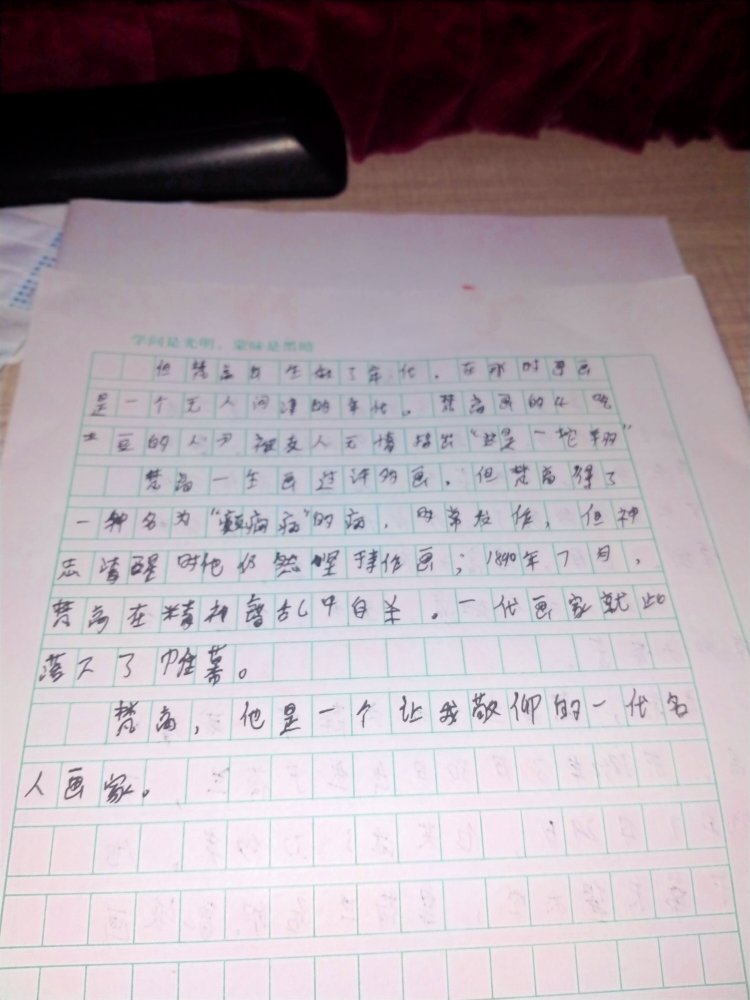 学问是光明，蒙昧是黑暗
但梵高发生错了年代，在那时画画
是一个无人问津的年代。梵高画的《吃
土豆的人》被友人无情指出"这是一拖
梵高一生画过许多画。但梵高得了
一种名为"癫痫病"的病，时常发作，但神
志清醒时他仍然坚持作画；1890年7月，
梵高在精神错乱中自杀。一代画家就此
落下了帷幕。
梵高，他是一个让我敬仰的一代名
人画家。